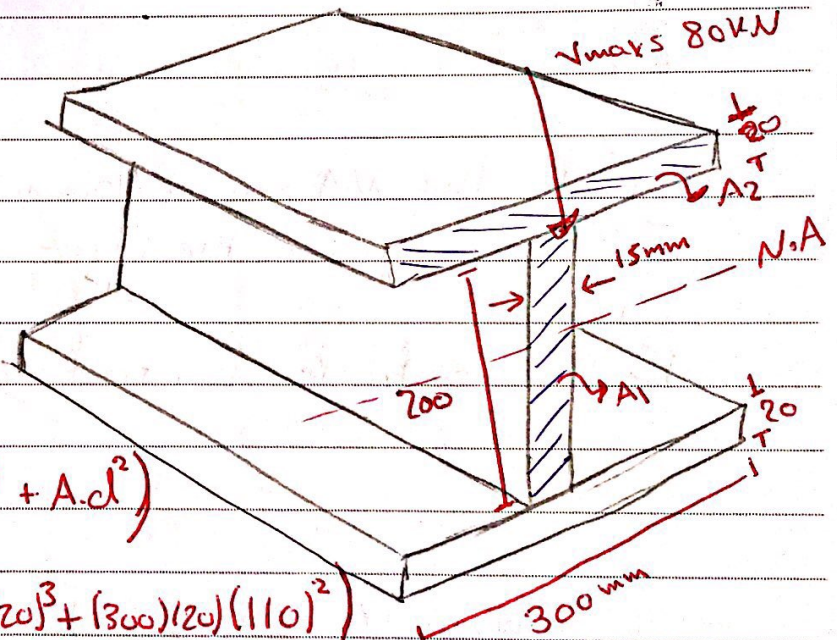 Vmax s 80kN
20
A2
15mm
N.A
200
A1
20
+ A.d²)
20)³ + (300)(20)(110)²)
300 mm